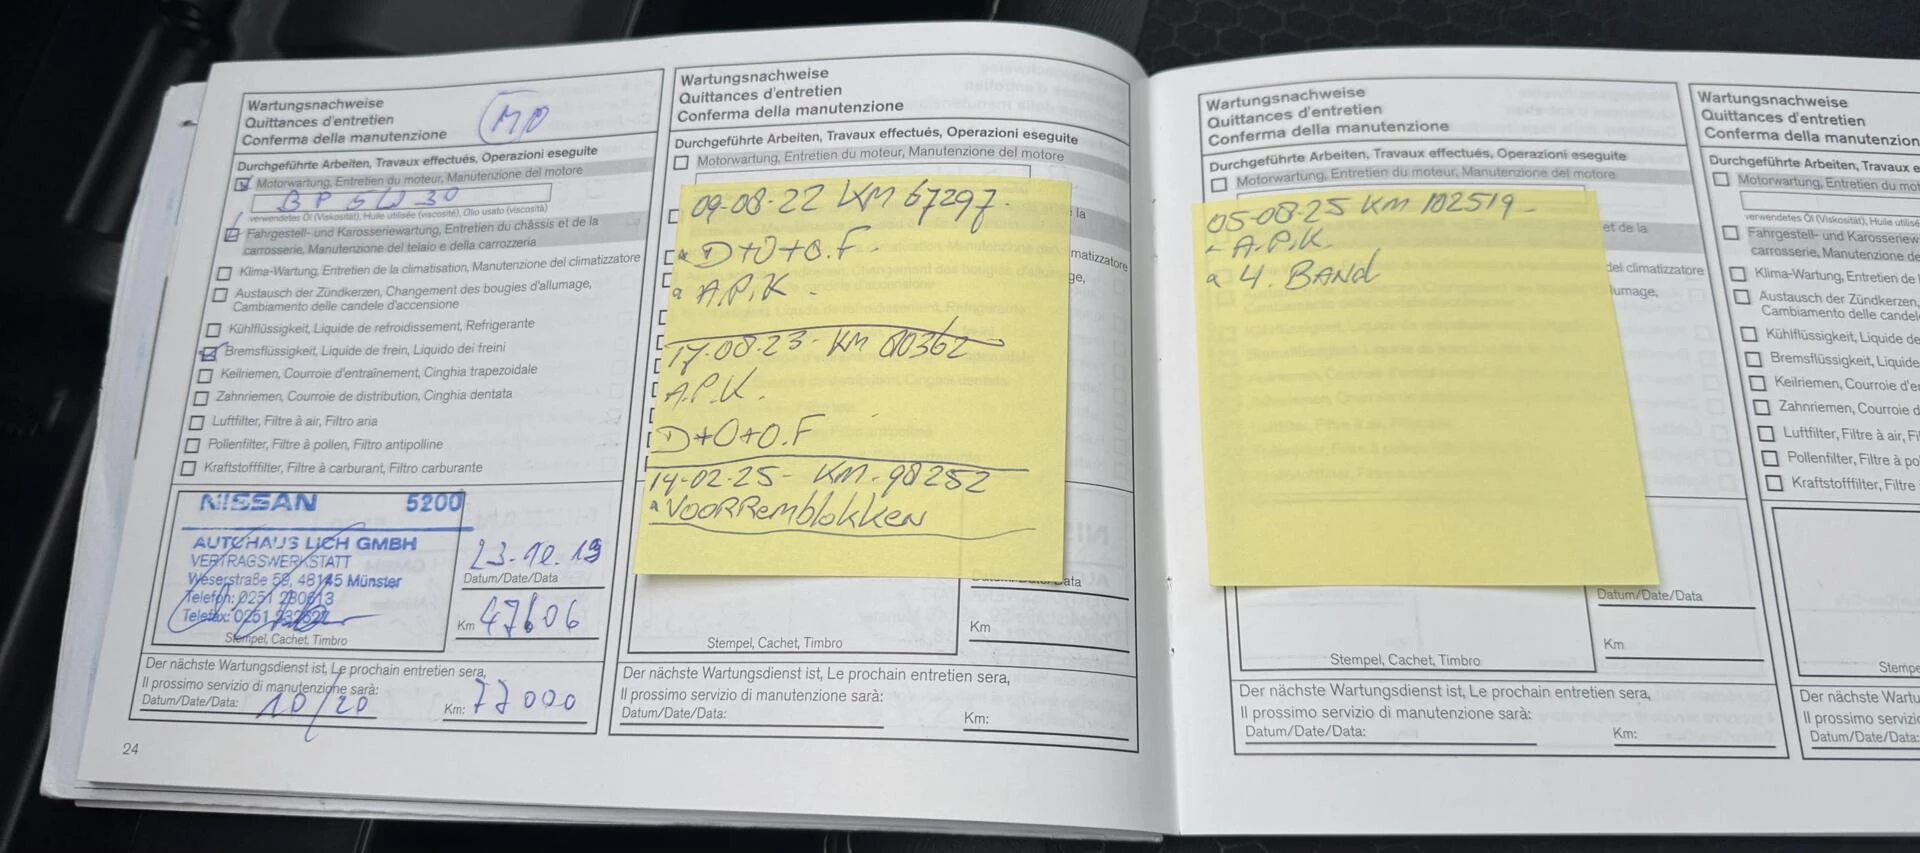 Wartungsnachweise
Quittances d'entretien
Conferma della manutenzione
Durchgeführte Arbeiten, Travaux effectués, Operazioni eseguite
Motorwartung, Entretien du moteur, Manutenzione del motore
verwendetes Öl (Viskosität), Huile utilisée (viscosité), Olio usato (viscosità)
Fahrgestell- und Karosseriewartung, Entretien du châssis et de la
carrosserie, Manutenzione del telaio e della carrozzeria
Klima-Wartung, Entretien de la climatisation, Manutenzione del climatizzatore
Austausch der Zündkerzen, Changement des bougies d'allumage,
Cambiamento delle candele d'accensione
Kühlflüssigkeit, Liquide de refroidissement, Refrigerante
Bremsflüssigkeit, Liquide de frein, Liquido dei freini
Keilriemen, Courroie d'entraînement, Cinghia trapezoidale
Zahnriemen, Courroie de distribution, Cinghia dentata
Luftfilter, Filtre à air, Filtro aria
Pollenfilter, Filtre à pollen, Filtro antipolline
Kraftstofffilter, Filtre à carburant, Filtro carburante
NISSAN 5200
AUTOHAUS LICH GMBH
VERTRAGSWERKSTATT
Weserstraße 59, 48145 Münster
Telefon: 0251 230613
Telefax: 0251
Stempel, Cachet, Timbro
23.10.19
Datum/Date/Data
Km 47606
Der nächste Wartungsdienst ist, Le prochain entretien sera,
Il prossimo servizio di manutenzione sarà:
Datum/Date/Data: 10/20 Km: 77000
24
Wartungsnachweise
Quittances d'entretien
Conferma della manutenzione
Durchgeführte Arbeiten, Travaux effectués, Operazioni eseguite
Motorwartung, Entretien du moteur, Manutenzione del motore
09-08-22 KM 67297.
D+O+O.F.
A.P.K.
17-08-23- KM 80362
A.P.K.
D+O+O.F
14-02-25- KM-98252
VOORREMBLOKKEN
la
matizzatore
ge,
Data
Km
Stempel, Cachet, Timbro
Der nächste Wartungsdienst ist, Le prochain entretien sera,
Il prossimo servizio di manutenzione sarà:
Datum/Date/Data: Km:
Wartungsnachweise
Quittances d'entretien
Conferma della manutenzione
Durchgeführte Arbeiten, Travaux effectués, Operazioni eseguite
Motorwartung, Entretien du moteur, Manutenzione del motore
05-08-25 KM 102519-
- A.P.K.
4. BAND
et de la
del climatizzatore
lumage,
Datum/Date/Data
Km
Stempel, Cachet, Timbro
Der nächste Wartungsdienst ist, Le prochain entretien sera,
Il prossimo servizio di manutenzione sarà:
Datum/Date/Data: Km:
Wartungsnachweise
Quittances d'entretien
Conferma della manutenzion
Durchgeführte Arbeiten, Travaux e
Motorwartung, Entretien du mot
verwendetes Öl (Viskosität), Huile utilisé
Fahrgestell- und Karosseriew
carrosserie, Manutenzione de
Klima-Wartung, Entretien de l
Austausch der Zündkerzen,
Cambiamento delle candel
Kühlflüssigkeit, Liquide de
Bremsflüssigkeit, Liquide
Keilriemen, Courroie d'e
Zahnriemen, Courroie d
Luftfilter, Filtre à air, Fi
Pollenfilter, Filtre à po
Kraftstofffilter, Filtre
Stempe
Der nächste Wartu
Il prossimo servizio
Datum/Date/Data: